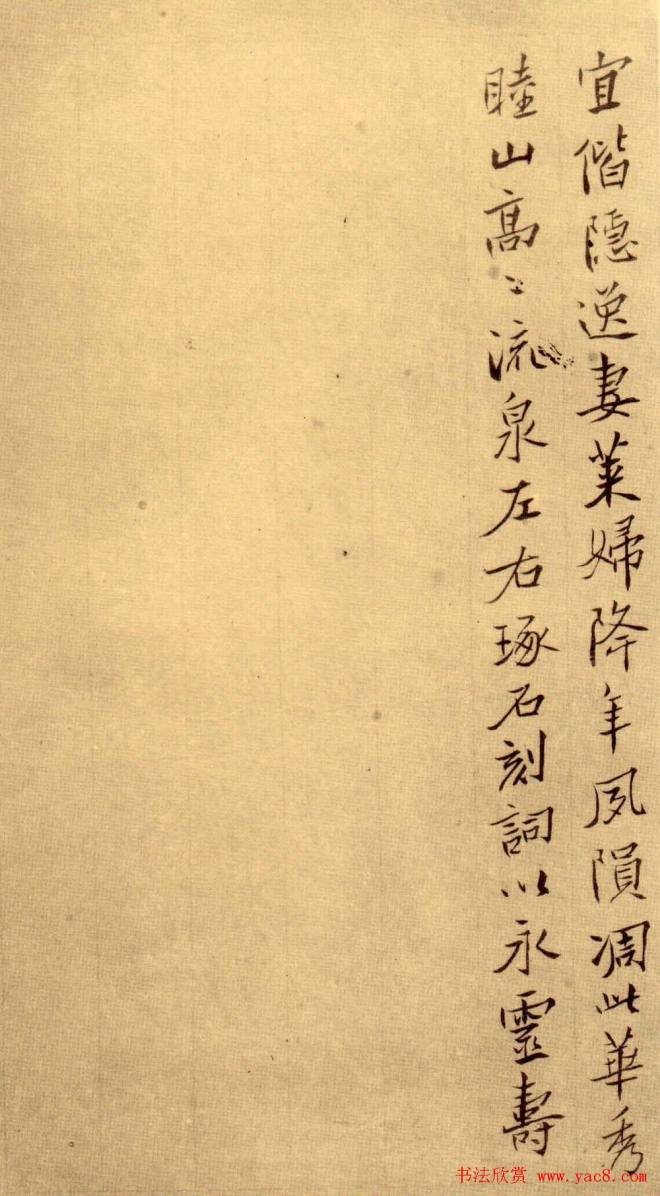 宜偕隱逸妻萊婦降年夙隕凋此華秀
睦山高〻流泉左右琢石刻詞以永靈壽
书法欣赏 www.yac8.com